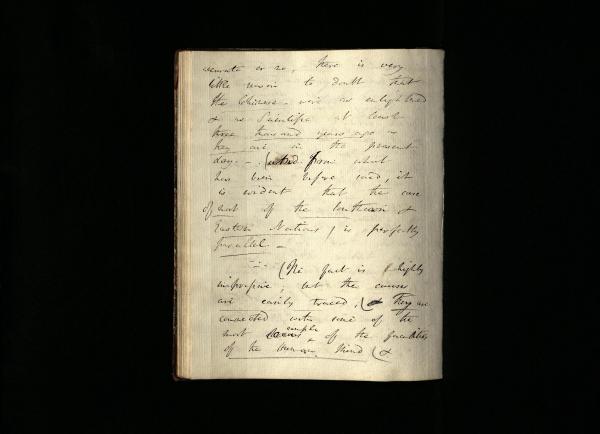 accurate or no, there is very
little reason to doubt that
the Chinese - were as enlightened
& as Scientific at least
three thousand years ago as
they are in the present
day. - (and from what
has been before said, it
is evident that the case
of most of the Southern &
Eastern Nations, is perfectly
parallel -
(The fact is highly
impressive; but the causes
are easily traced, (& they are
connected with some of the
most simple of the faculties
of the Human Mind (&